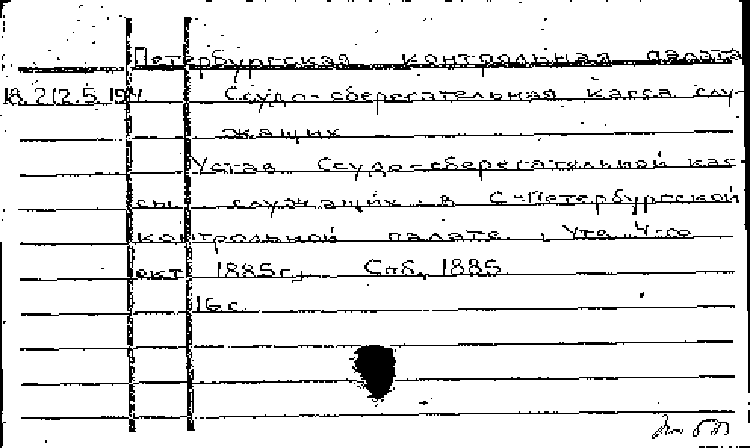 Петербургская контрольная палата
18.212.5.19 Ссудо-сберегательная касса слу-
жащих
Устав Ссудо-сберегательной кас-
сы служащих в С-Петербургской
контрольной палате. Утв. 4-го
окт 1885г. Спб, 1885
16 с.